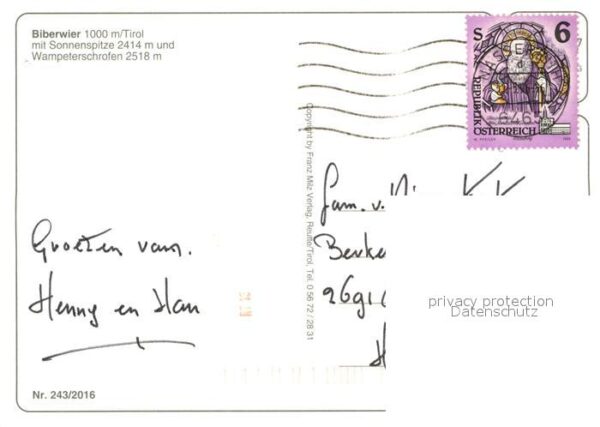 Biberwier 1000 m/Tirol
mit Sonnenspitze 2414 m und
Wampeterschrofen 2518 m
S 6
REPUBLIK
ÖSTERREICH
Copyright by Franz Milz Verlag, Reutte/Tirol, Tel. 0 56 72 / 28 31
Groeten van.
Henny en Han
Nr. 243/2016
Fam. v.
2691
privacy protection
Datenschutz